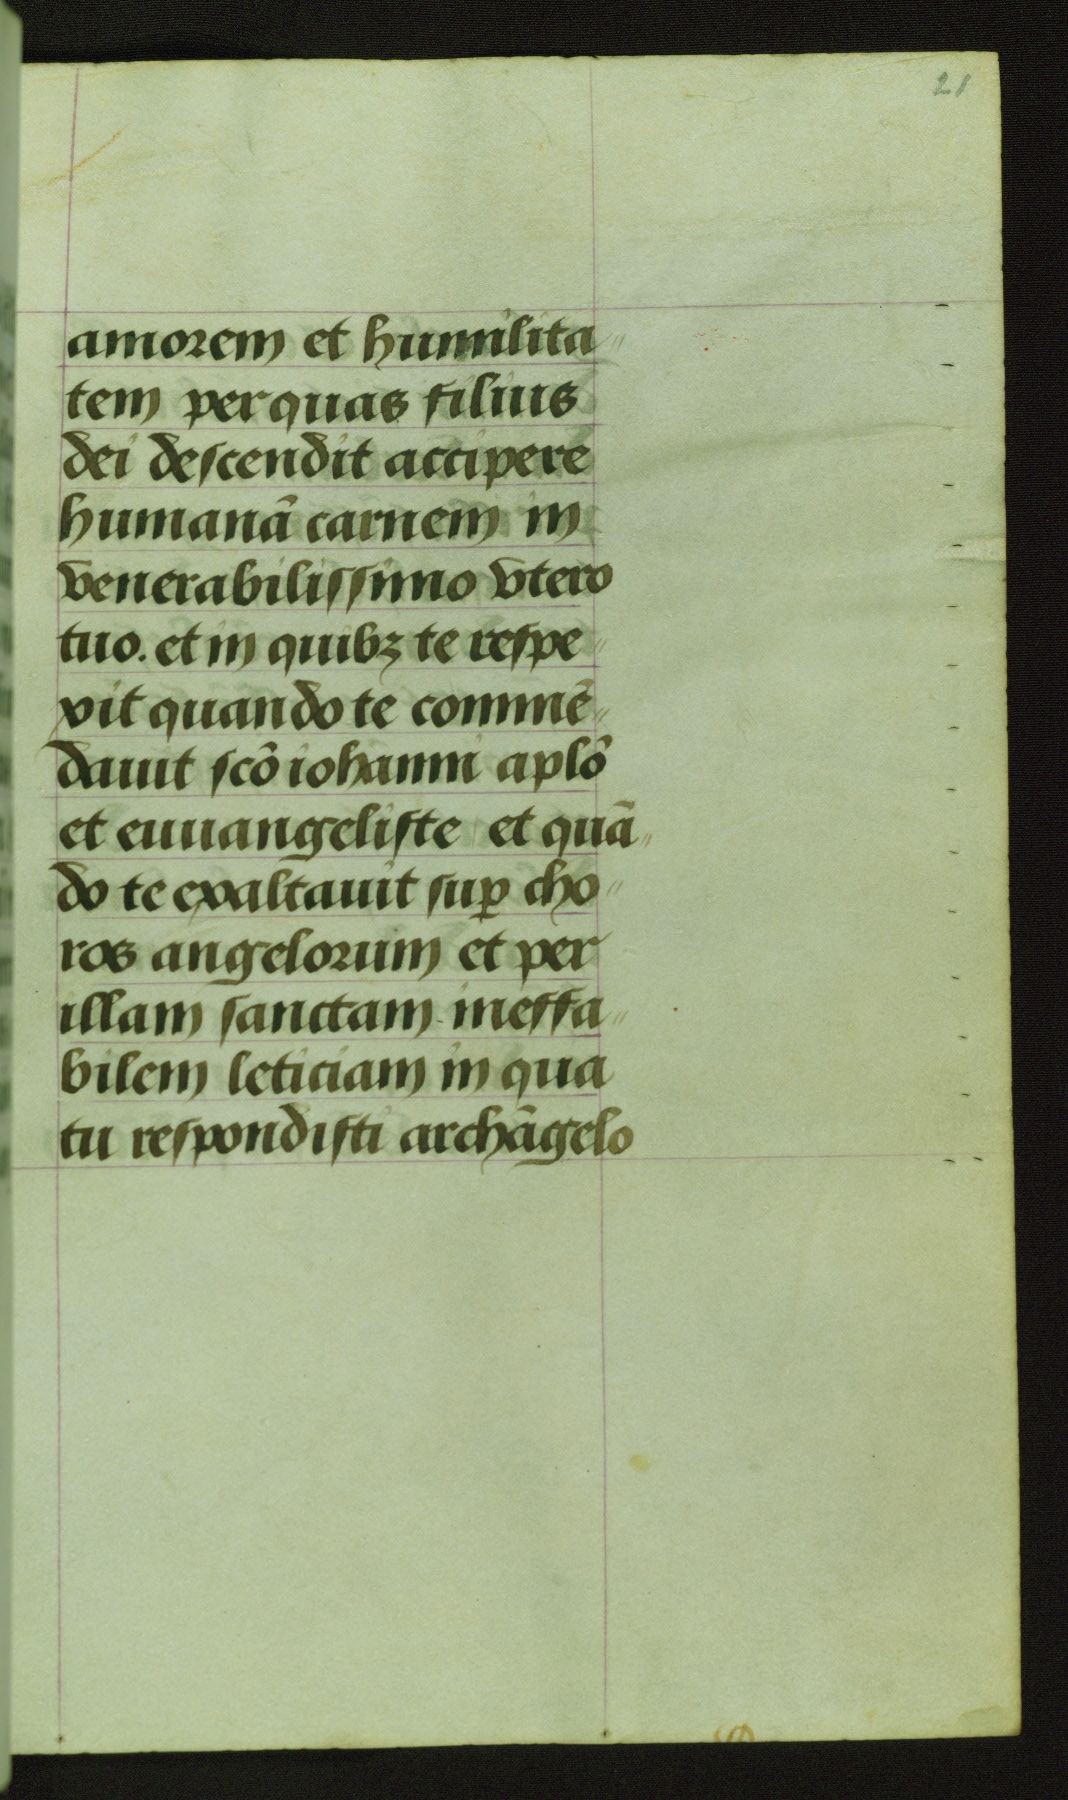 21
amorem et humilita〃
tem per quas filius
dei descendit accipere
humanā carnem in
venerabilissimo vtero
tuo. et in quibꝫ te respe〃
xit quando te commē〃
dauit scō iohanni aplō
et euuangeliste et quā〃
do te exaltauit suꝑ cho〃
ros angelorum et per
illam sanctam ineffa〃
bilem leticiam in qua
tu respondisti archāgelo